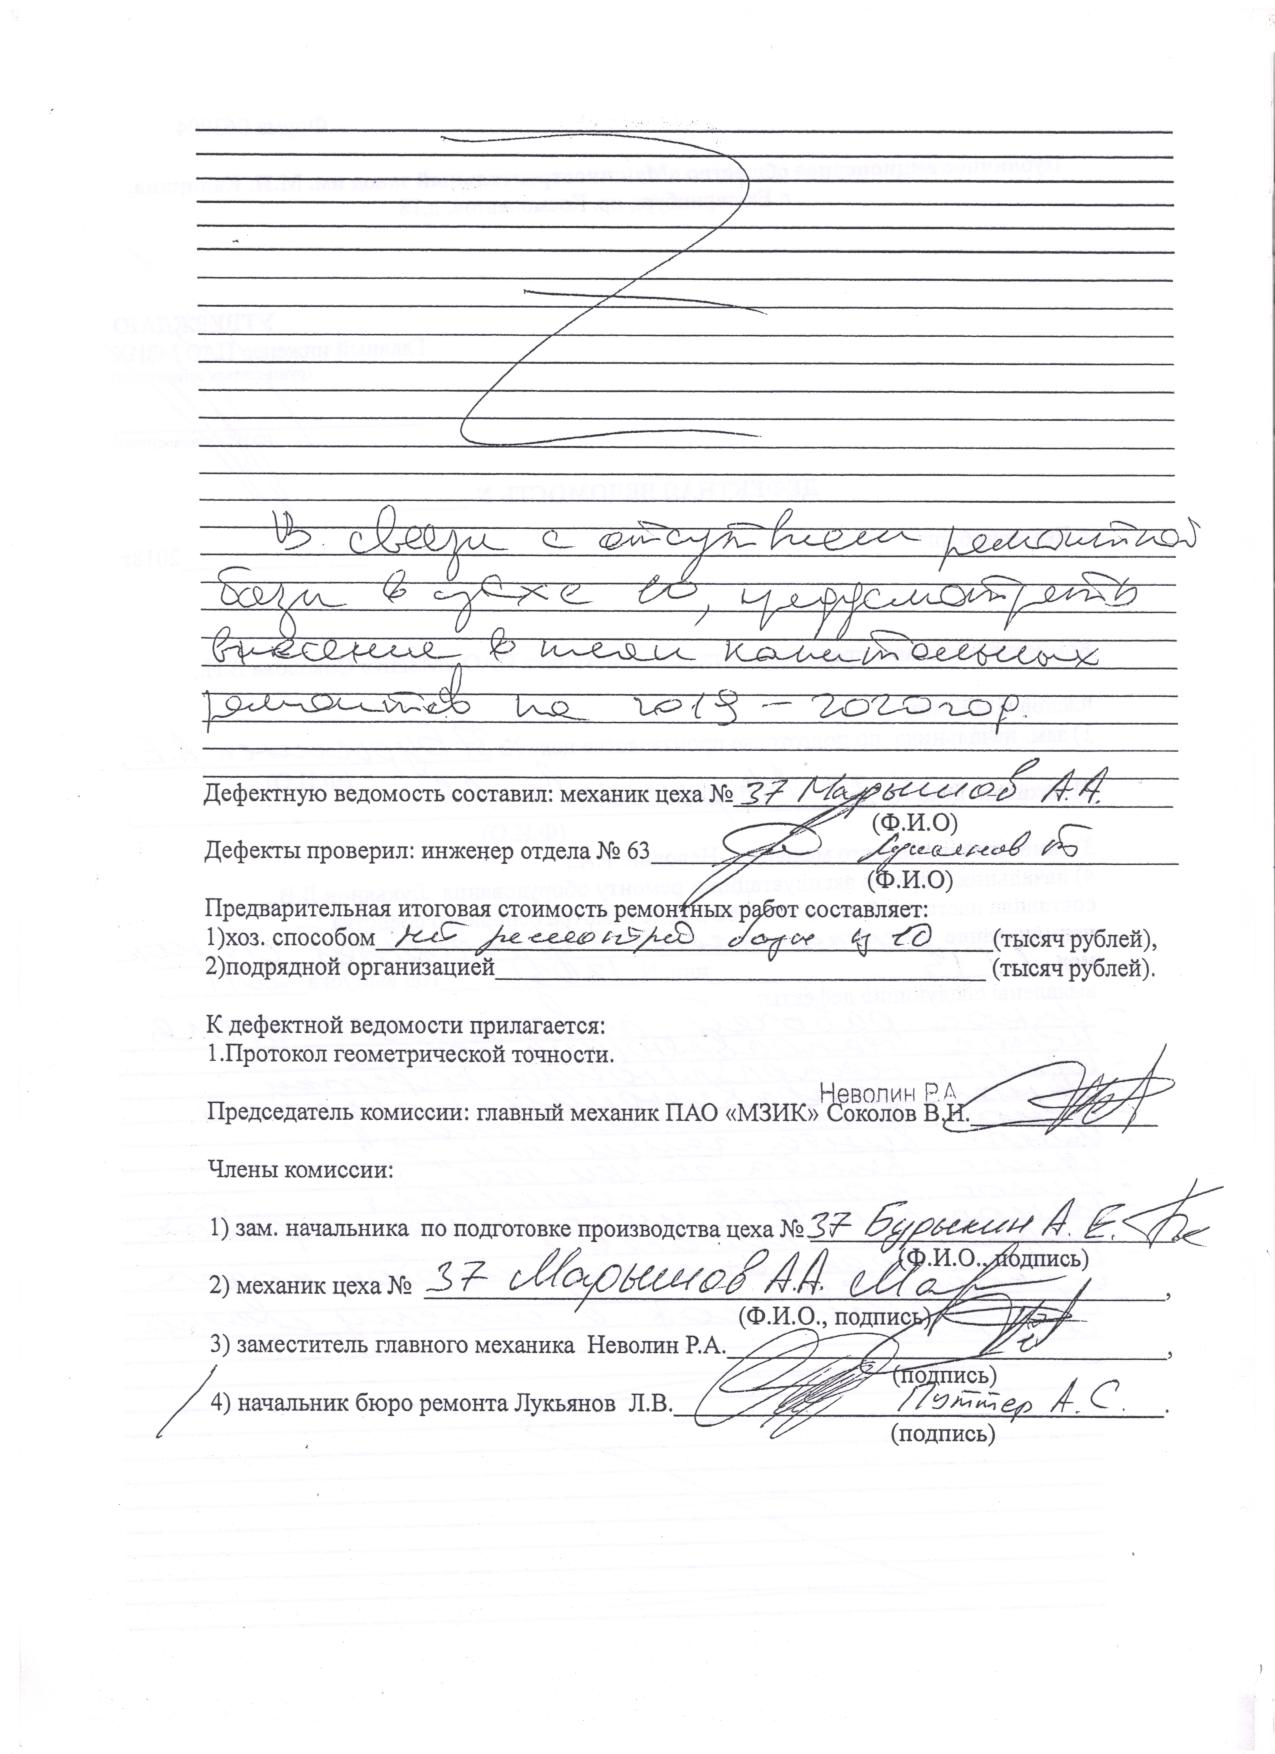 В связи с отсутствием ремонтной
базы в цехе 10, предусмотреть
внесение в план капитальных
ремонтов на 2019 – 2020 гор.
Дефектную ведомость составил: механик цеха № 37 Марышов А.А.
(Ф.И.О)
Дефекты проверил: инженер отдела № 63
(Ф.И.О)
Предварительная итоговая стоимость ремонтных работ составляет:
1)хоз. способом нет базы ц 10 (тысяч рублей),
2)подрядной организацией (тысяч рублей).
К дефектной ведомости прилагается:
1.Протокол геометрической точности.
Неволин Р.А
Председатель комиссии: главный механик ПАО «МЗИК» Соколов В.Н.
Члены комиссии:
1) зам. начальника по подготовке производства цеха № 37 Бурыкин А. Е.
(Ф.И.О., подпись)
2) механик цеха № 37 Марышов А.А. ,
(Ф.И.О., подпись)
3) заместитель главного механика Неволин Р.А. ,
(подпись)
4) начальник бюро ремонта Лукьянов Л.В. Путтер А.С. .
(подпись)